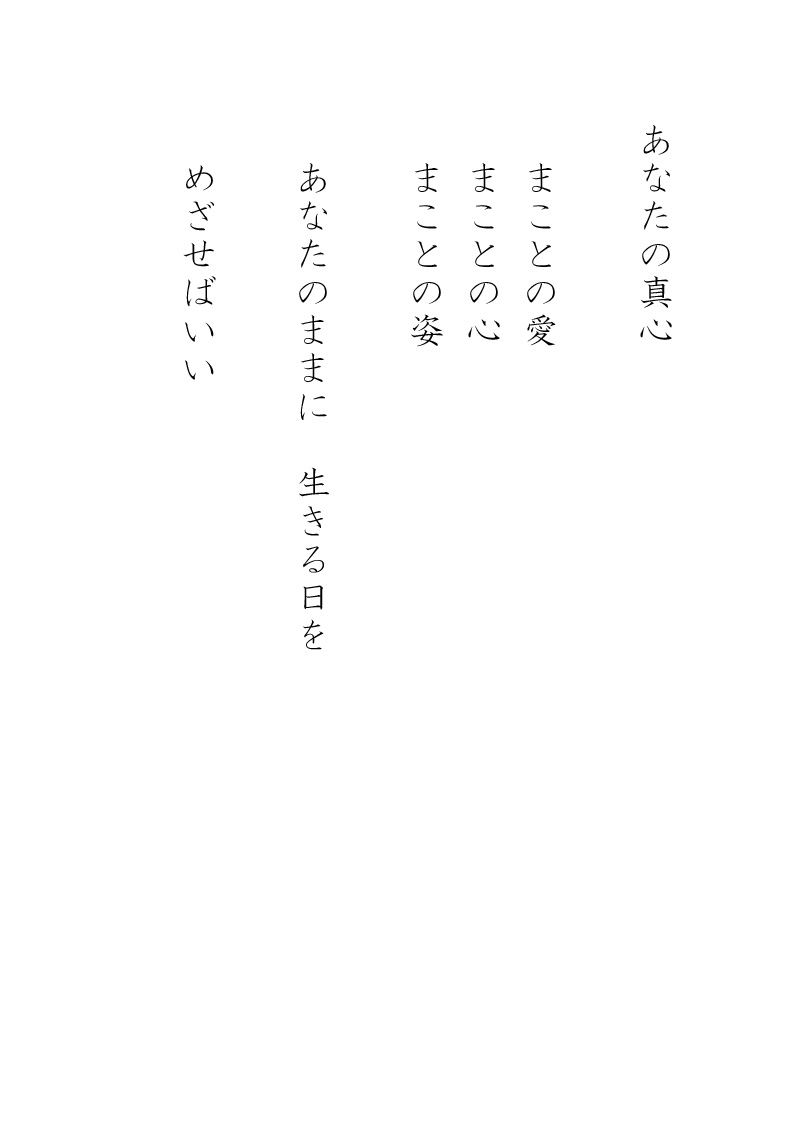 あなたの真心
まことの愛
まことの心
まことの姿
あなたのままに　生きる日を
めざせばいい